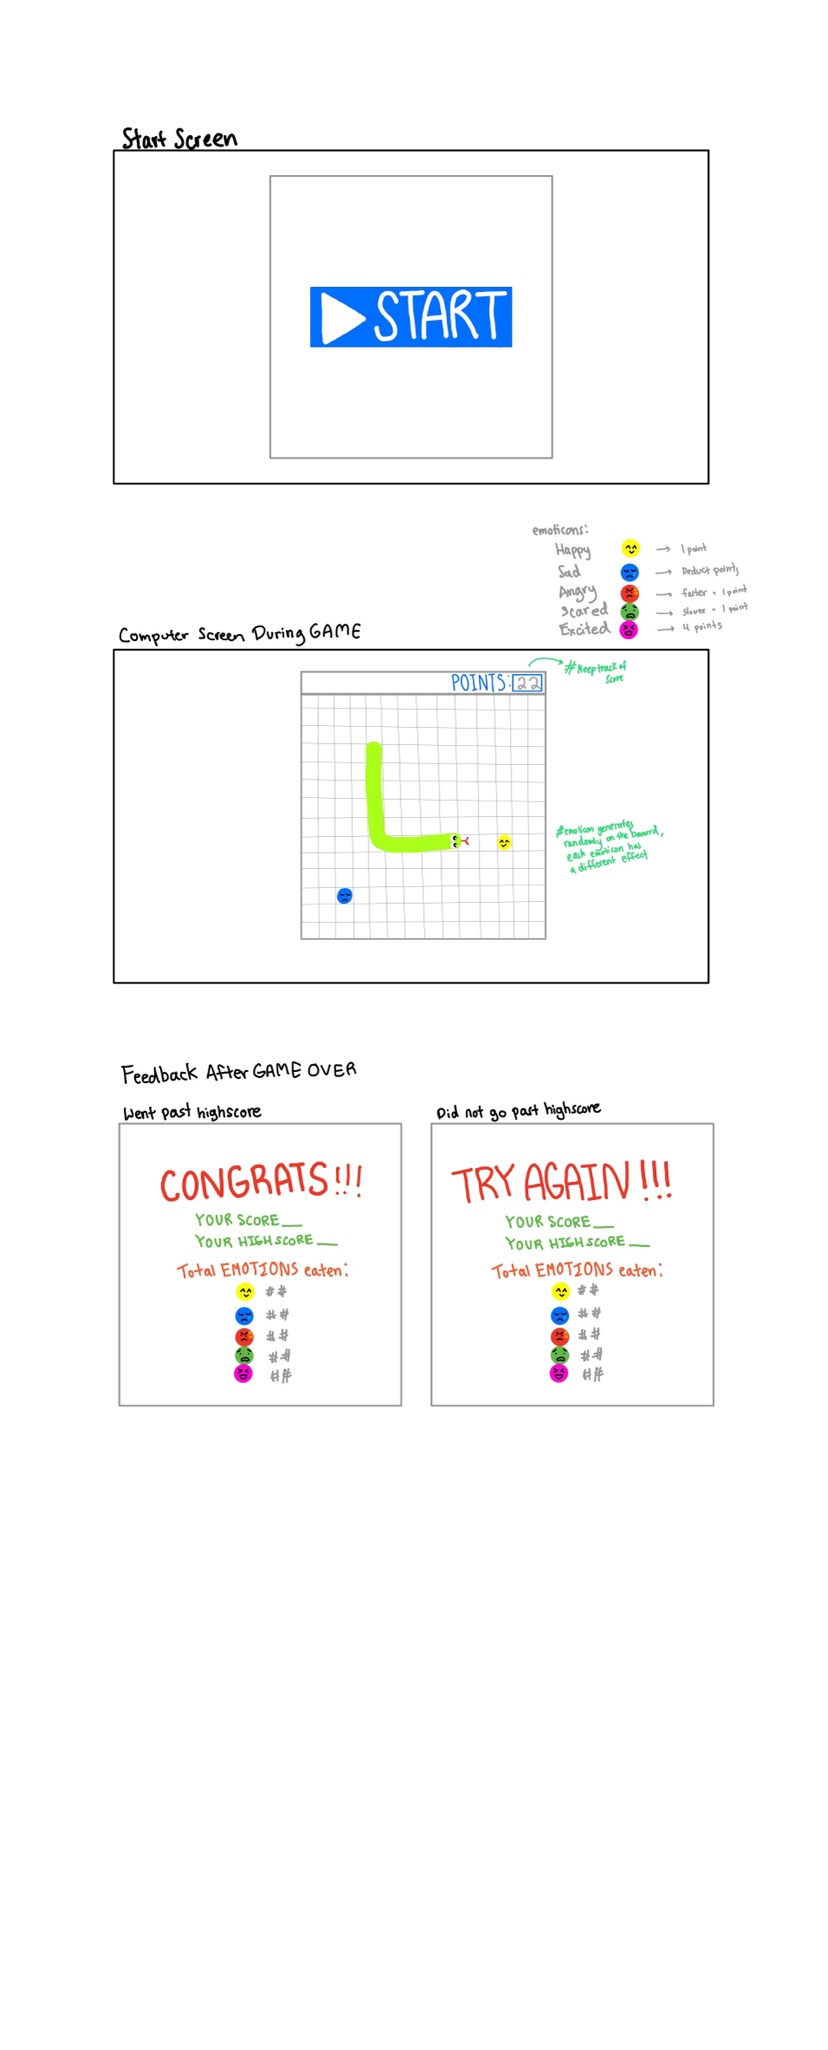 Start Screen
START
emoticons:
Happy → 1 point
Sad → Deduct points
Angry → faster + 1 point
Scared → slower + 1 point
Excited → 4 points
Computer Screen During GAME
POINTS: 22
# Keep track of
score
#emoticon generates
randomly on the board,
each emoticon has
a different effect
Feedback After GAME OVER
Went past highscore
CONGRATS!!!
YOUR SCORE __
YOUR HIGHSCORE __
Total EMOTIONS eaten:
##
##
##
##
##
Did not go past highscore
TRY AGAIN!!!
YOUR SCORE __
YOUR HIGHSCORE __
Total EMOTIONS eaten:
##
##
##
##
##